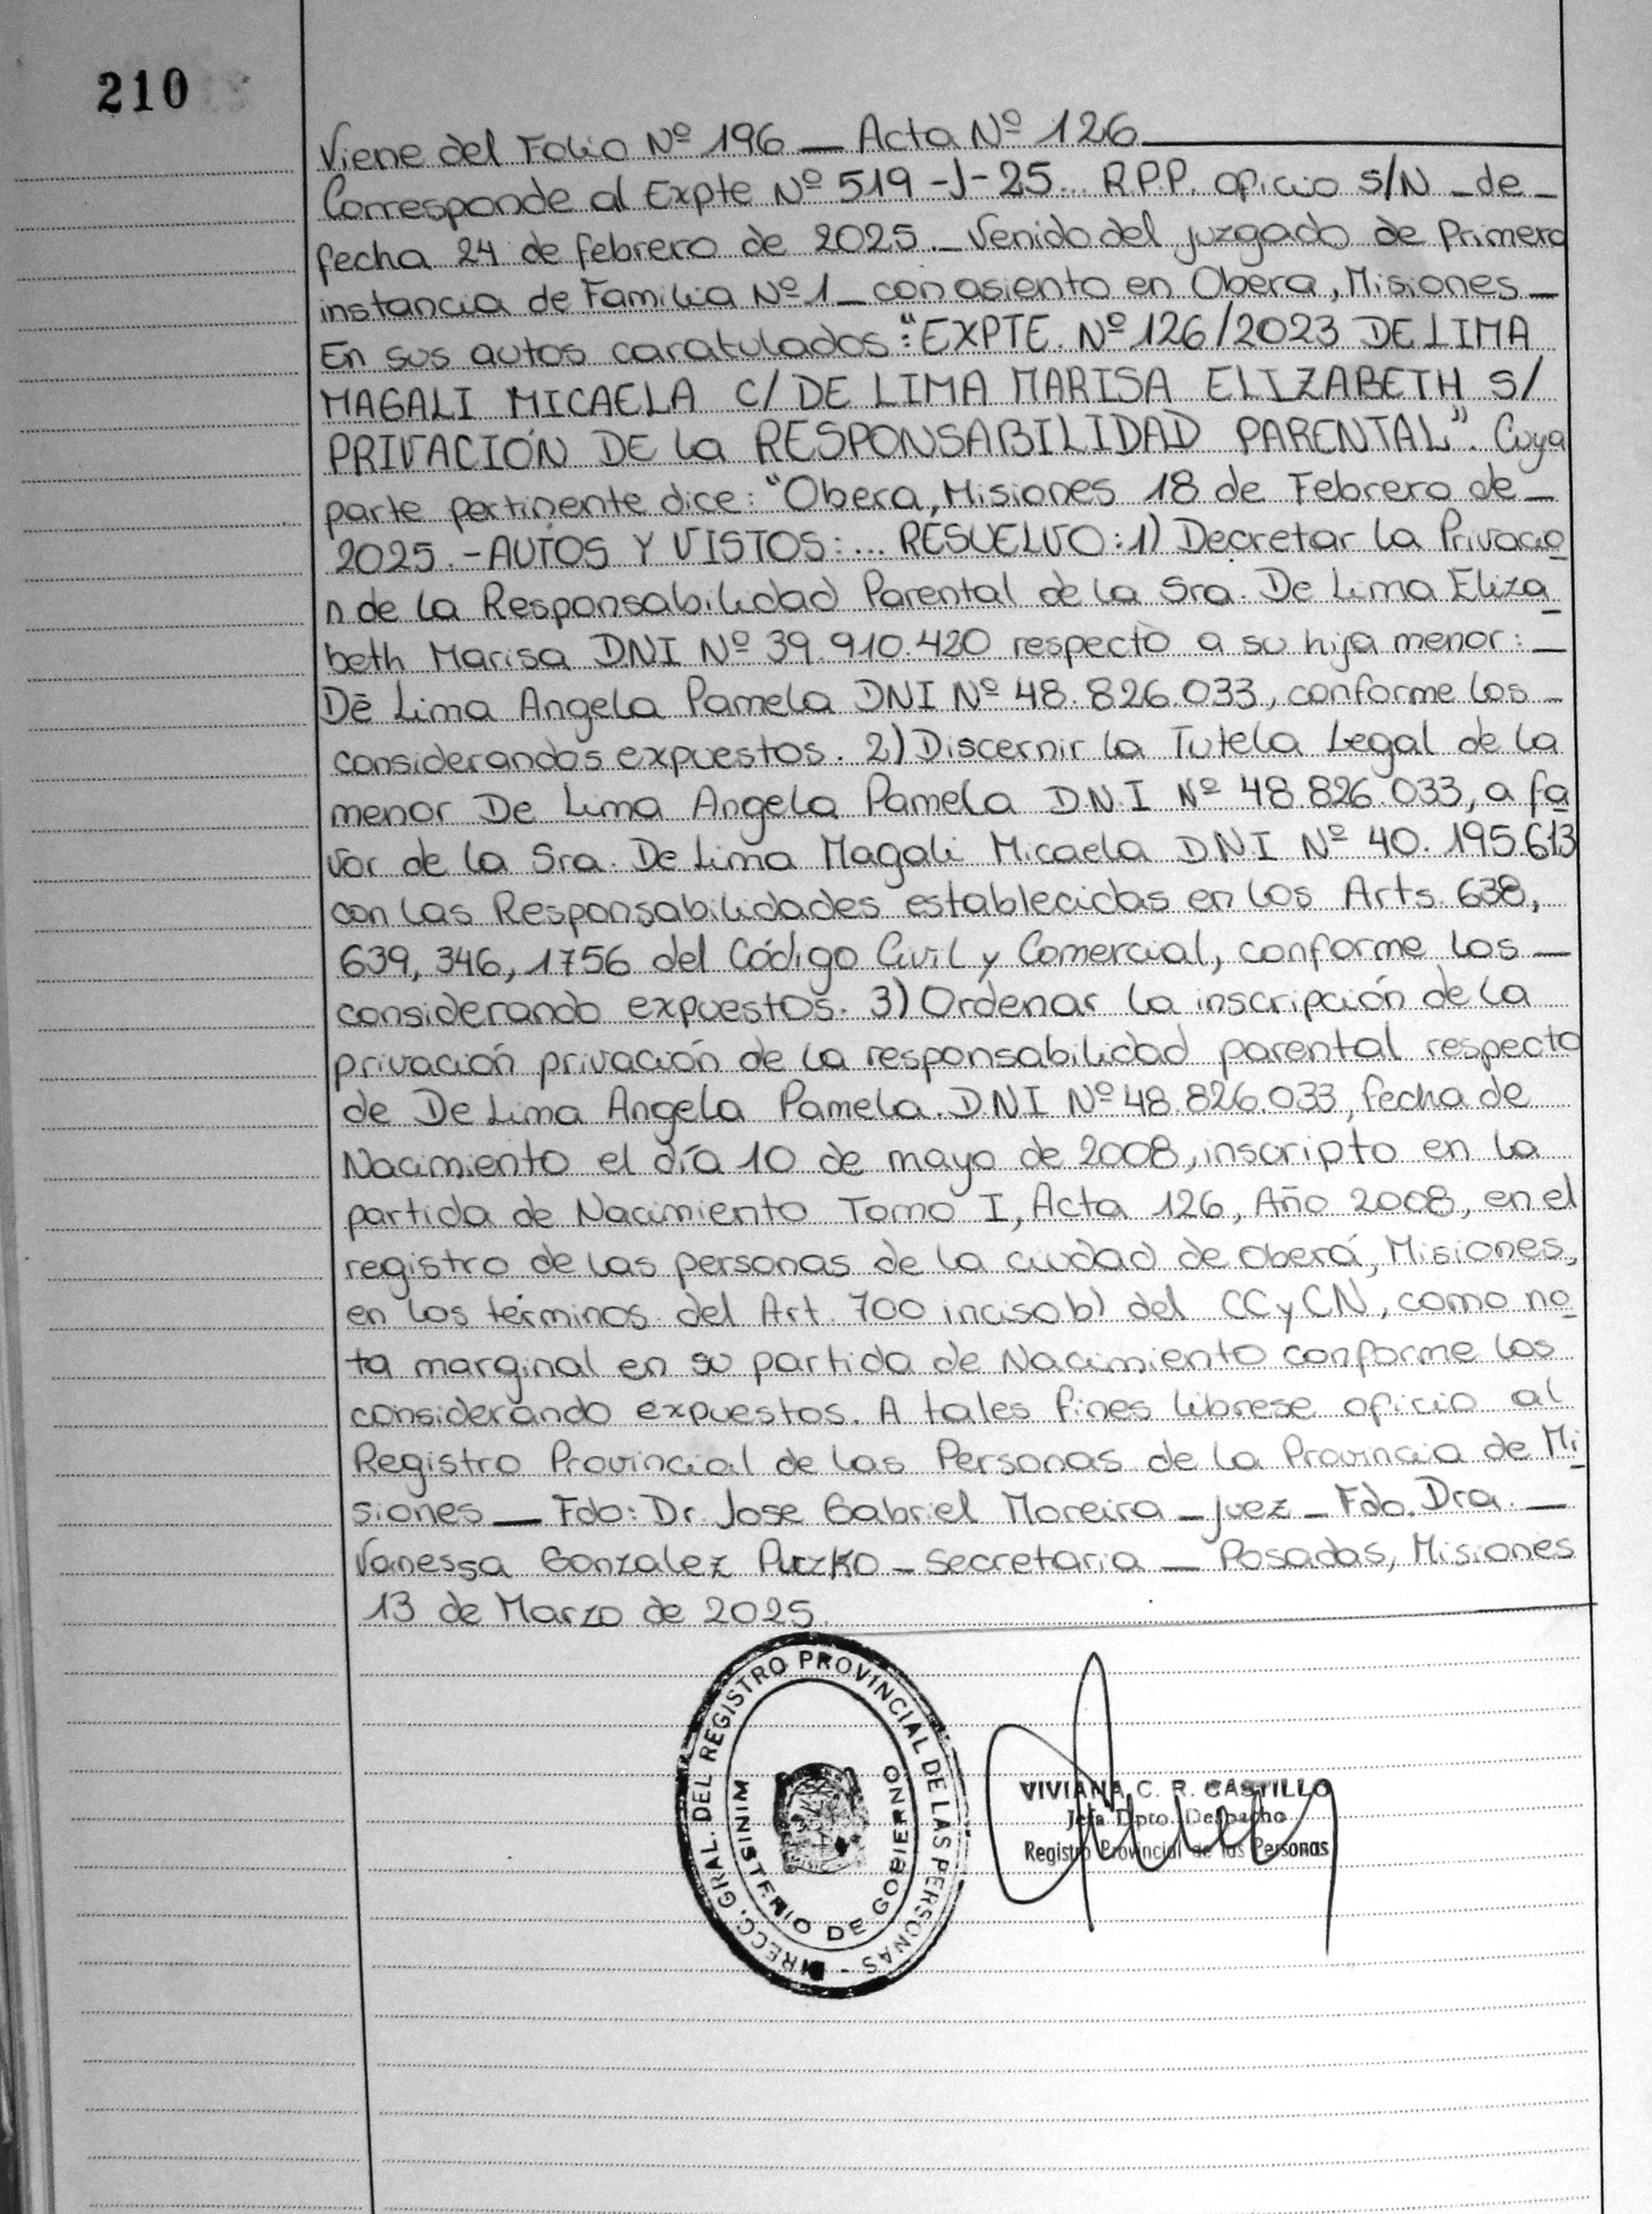 210
Viene del Folio Nº 196 — Acta Nº 126
Corresponde al Expte Nº 519-J-25... R.P.P. oficio S/N _ de _
fecha 24 de febrero de 2025._ Venido del juzgado de Primera
instancia de Familia Nº 1 _ con asiento en Obera, Misiones _
En sus autos caratulados: "EXPTE. Nº 126/2023 DE LIMA
MAGALI MICAELA C/ DE LIMA MARISA ELIZABETH S/
PRIVACIÓN DE La RESPONSABILIDAD PARENTAL". Cuya
parte pertinente dice: "Obera, Misiones 18 de Febrero de _
2025.- AUTOS Y VISTOS: ... RESUELVO: 1) Decretar la Privacio
n de la Responsabilidad Parental de la Sra. De Lima Eliza
beth Marisa DNI Nº 39.910.420 respecto a su hija menor: _
De Lima Angela Pamela DNI Nº 48.826.033, conforme los _
considerandos expuestos. 2) Discernir la Tutela Legal de la
menor De Lima Angela Pamela D.N.I Nº 48.826.033, a fa
vor de la Sra. De Lima Magali Micaela D.N.I Nº 40.195.613
con las Responsabilidades establecidas en los Arts. 638,
639, 346, 1756 del Código Civil y Comercial, conforme los _
considerando expuestos. 3) Ordenar la inscripción de la
privación privación de la responsabilidad parental respecto
de De Lima Angela Pamela. D.N.I Nº 48.826.033, fecha de
Nacimiento el día 10 de mayo de 2008, inscripto en la
partida de Nacimiento Tomo I, Acta 126, Año 2008, en el
registro de las personas de la ciudad de Oberá, Misiones,
en los términos del Art. 700 inciso b) del CCyCN, como no
ta marginal en su partida de Nacimiento conforme los
considerando expuestos. A tales fines librese oficio al
Registro Provincial de las Personas de la Provincia de Mi
siones — Fdo: Dr. Jose Gabriel Moreira _ juez _ Fdo. Dra. _
Vanessa Gonzalez Puzko _ Secretaria _ Posadas, Misiones
13 de Marzo de 2025.
DIRECC. GRAL. DEL REGISTRO PROVINCIAL DE LAS PERSONAS -
MINISTERIO DE GOBIERNO
VIVIANA C. R. CASTILLO
Jefa Dpto. Despacho
Registro Provincial de las Personas